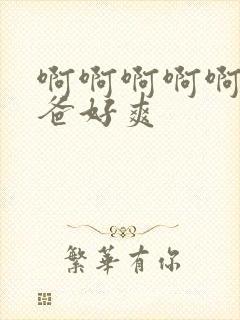 啊啊啊啊啊
爸好爽
繁华有你